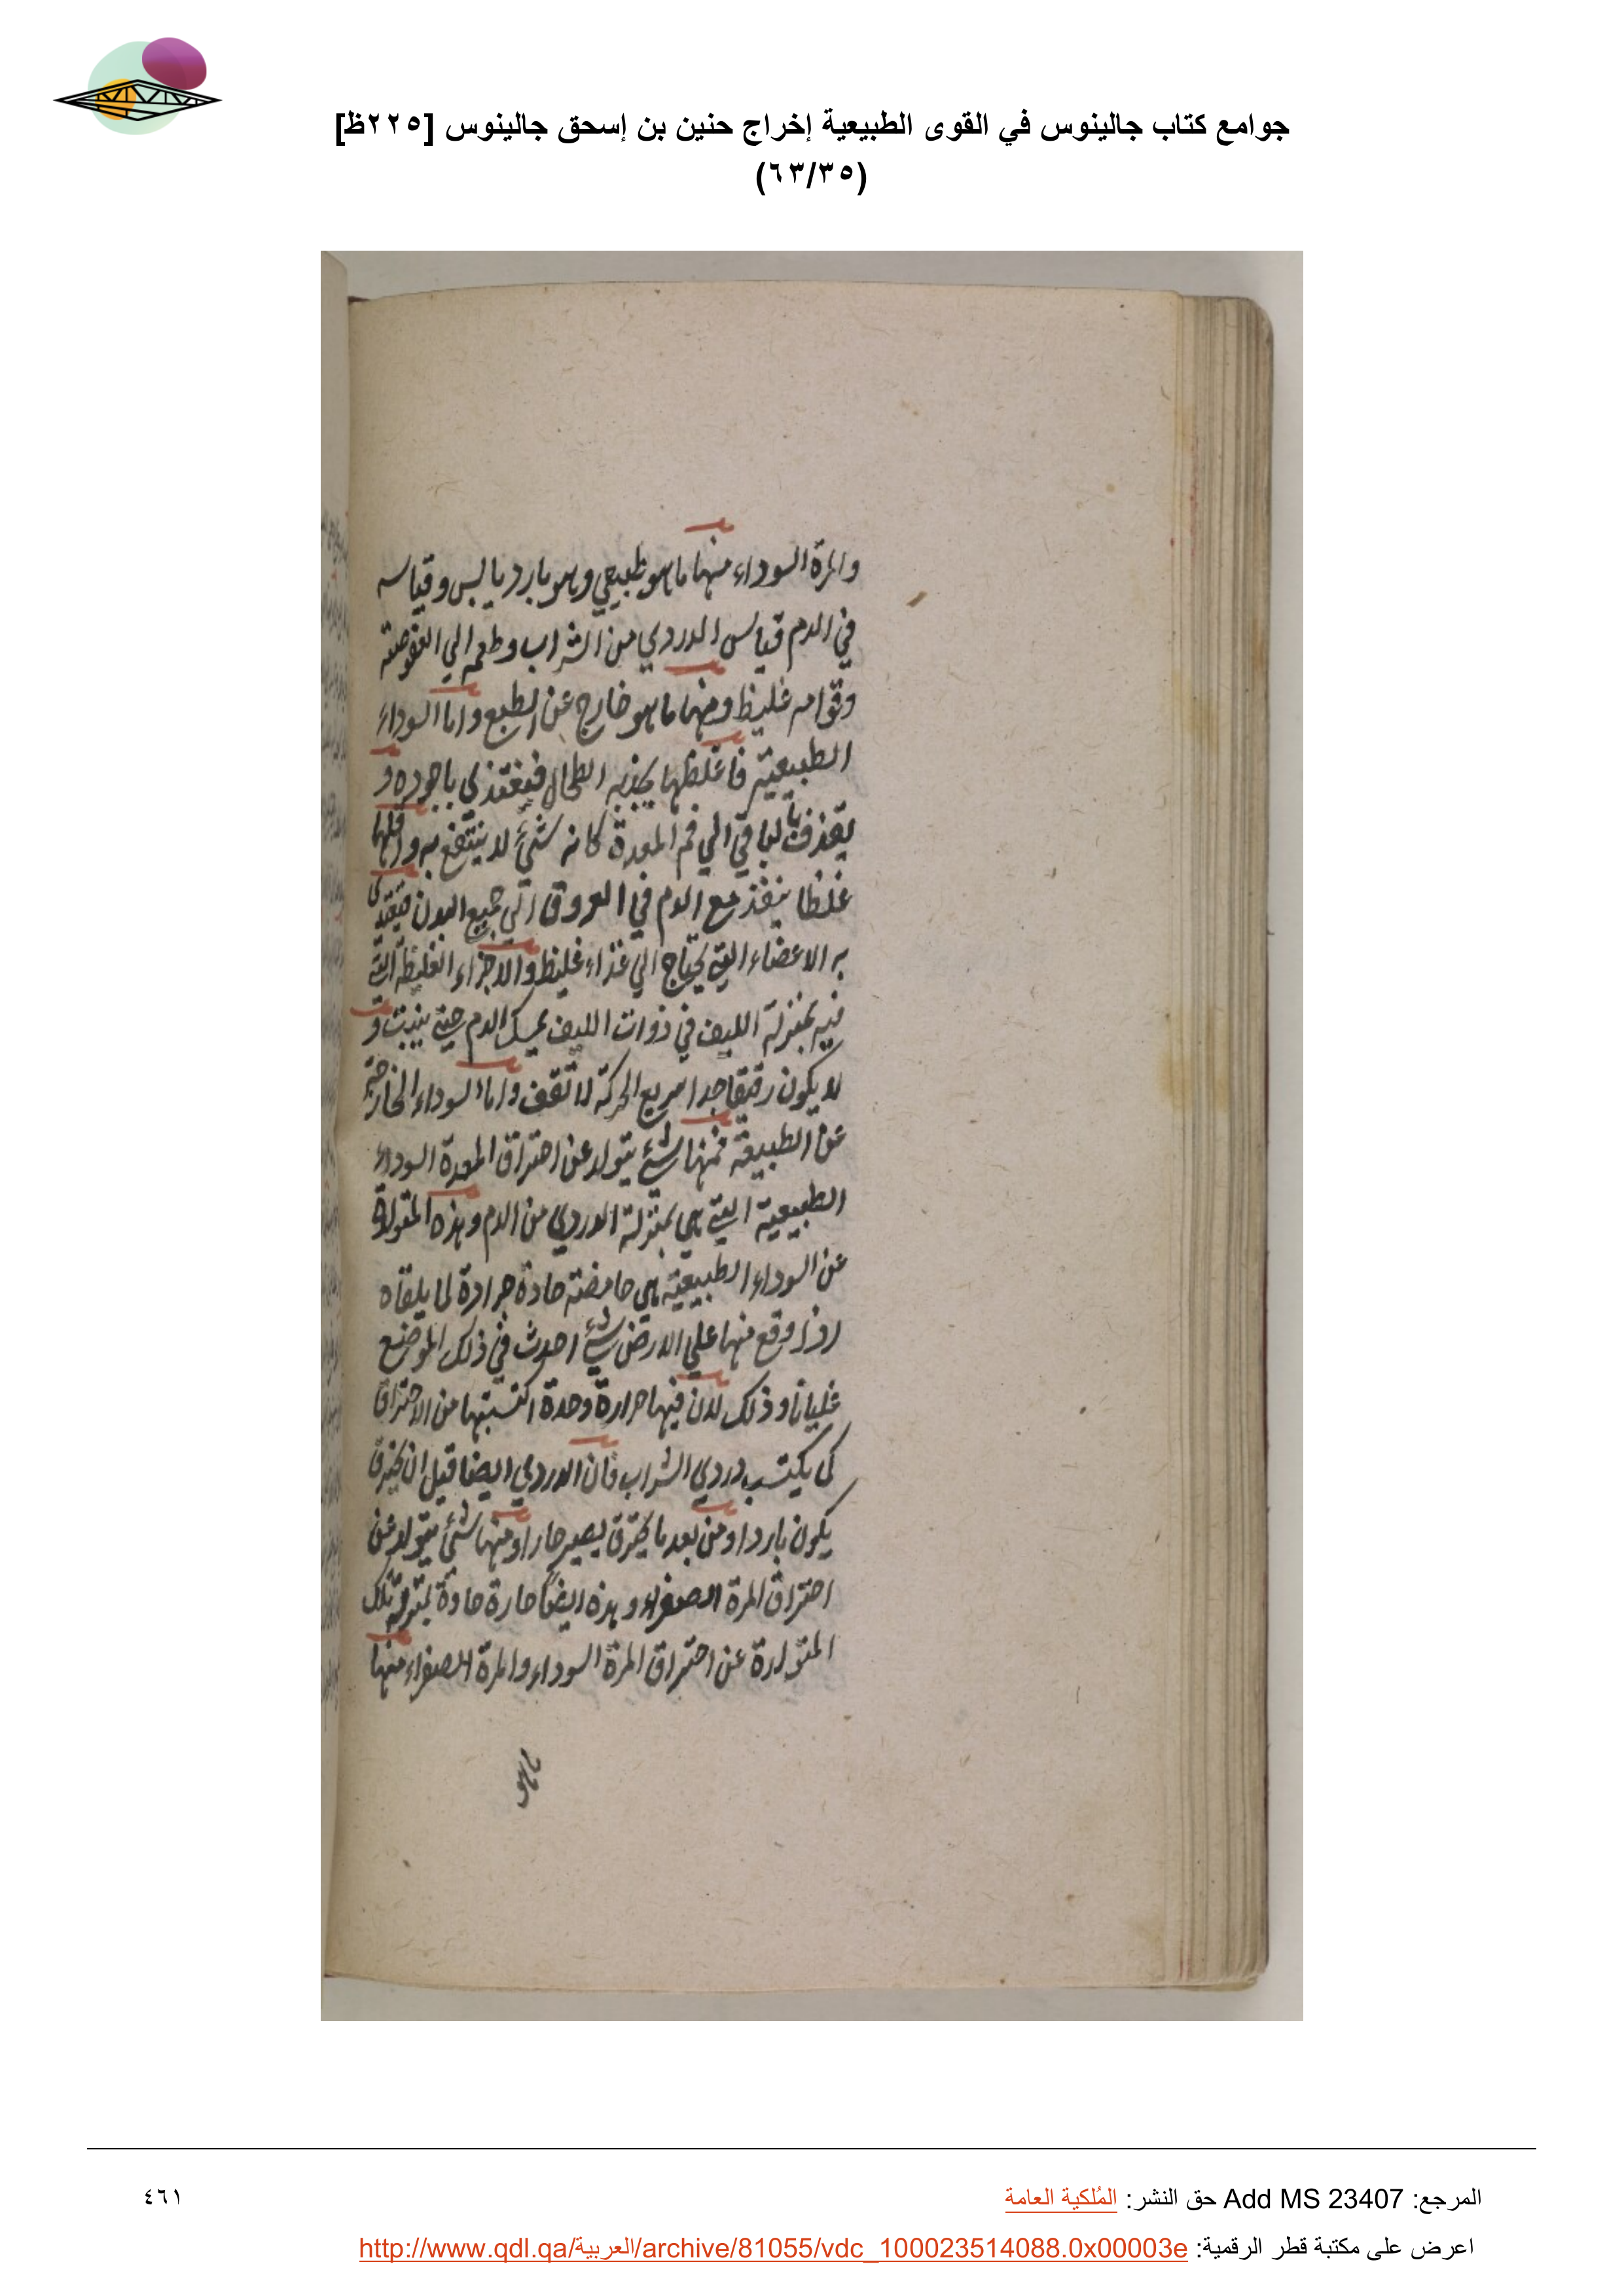 جوامع كتاب جالينوس في القوى الطبيعية إخراج حنين بن إسحق جالينوس [٢٢٥ظ]
(٦٣/٣٥)
والمرة السوداء منها ما هو طبيعي وهو بارد يابس وقياسه
في الدم قياس الدردي من الشراب وطعمه الي العفوصة
وقوامه غليظ ومنها ما هو خارج عن الطبع واما السوداء
الطبيعية فاغلظها يجذبه الطحال فيغتذي باجوده و
يقذف بالباقي الي فم المعدة كانه شئ لا ينتفع به واقلها
غلظا ينفذ مع الدم في العروق الي جميع البدن فيغتذي
به الاعضاء التي يحتاج الي غذاء غليظ والاجزاء الغليظة التي
فيه بمنزلة الليف في ذوات الليف يمسك الدم حتي يثبت و
لا يكون رقيقا جدا سريع الحركة لا تقف واما السوداء الخارجة
عن الطبيعة فمنها شئ يتولد عن احتراق المعدة السوداء
الطبيعية التي هي بمنزلة الدردي من الدم وهذه المتولدة
عن السوداء الطبيعية هي حامضة حادة جرادة لما يلقاه
واذا وقع منها علي الارض شئ احدث في ذلك الموضع
غليانا وذلك لان فيها حرارة وحدة اكتسبتها من الاحتراق
كما يكتسب دردي الشراب فان الدردي ايضا قبل ان يحترق
يكون باردا ومن بعد ما يحترق يصير حارا ومنها شئ يتولد عن
احتراق المرة الصفراء وهذه ايضا حارة حادة بمنزلة تلك
المتولدة عن احتراق المرة السوداء والمرة الصفراء منها
ما هو
المرجع: Add MS 23407 حق النشر: المُلكية العامة
٤٦١
اعرض على مكتبة قطر الرقمية: http://www.qdl.qa/العربية/archive/81055/vdc_100023514088.0x00003e